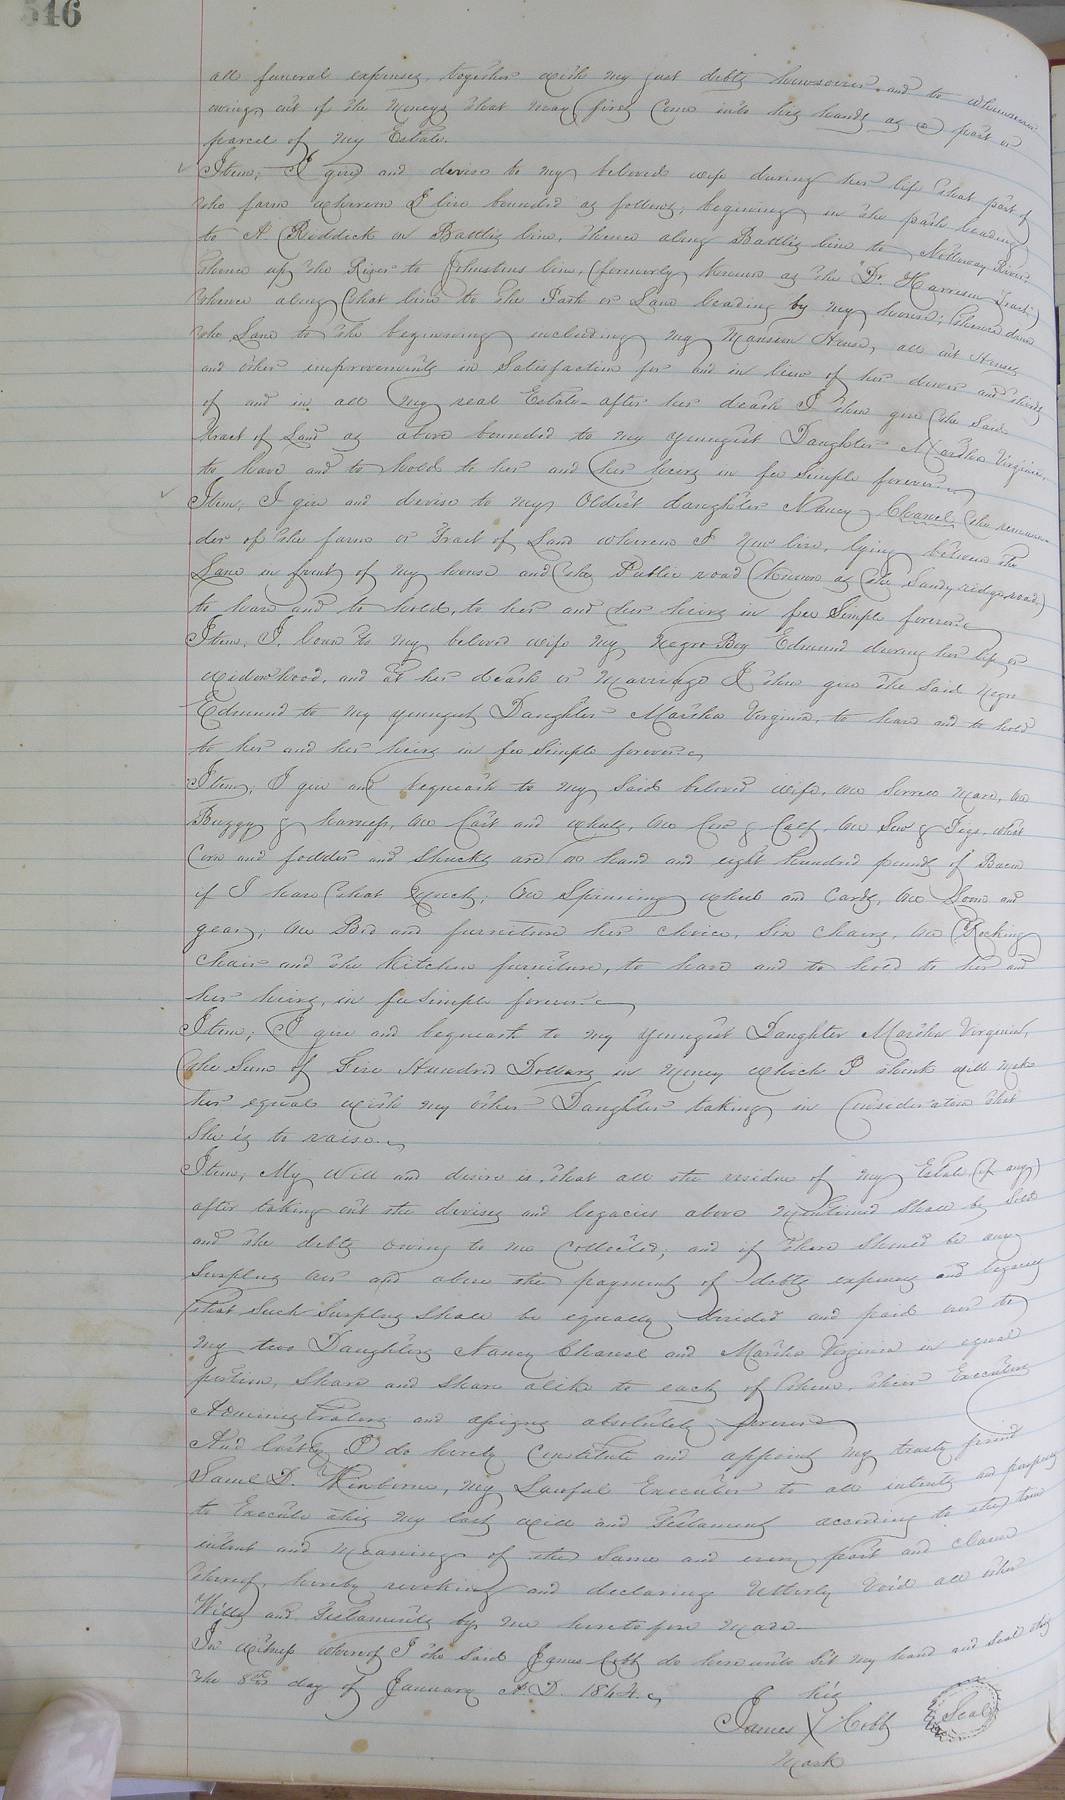 546
all funeral expenses, together with my just debts howsoever and to whomsoever
owing, out of the moneys that may first Come into his hands as a part or
parcel of my Estate.
Item, I give and devise to my beloved wife during her life that part of
the farm whereon I live bounded as follows; begining in the path leading
to A Riddick on Battles line, thence along Battles line to Nottoway River,
thence up the River to Johnstons line, (formerly known as the Dr. Harrison Tract)
thence along that line to the Path or Lane leading by my house; thence down
the Lane to the beginning including my Mansion House, all out Houses
and other improvements in Satisfaction for and in lieu of her dower and thirds
of and in all my real Estate - after her death I then give the said
tract of Land as above bounded to my youngest Daughter Martha Virginia,
to have and to hold to her and her heirs in fee Simple forever.
Item, I give and devise to my Oldest daughter Nancy Chancel, the remain-
der of the farm or Tract of Land whereon I now live, lying between the
Lane in front of my house and the Public road (Known as the Sandy ridge road,)
to have and to hold, to her and her heirs in fee Simple forever.
Item, I loan to my beloved wife my Negro Boy Edmund during her life or
widowhood, and at her death or marriage I then give the said Negro
Edmund to my youngest Daughter Martha Virginia, to have and to hold
to her and her heirs in fee Simple forever.
Item, I give and bequeath to my said beloved wife, one sorrel mare, one
Buggy & harness, one Cart and wheels, one Cow & Calf, one Sow & Pigs, what
Corn and fodder and shucks are on hand and eight hundred pounds of Bacon
if I have that much; One Spinning wheel and Cards, one Loom and
gear, one Bed and furniture her choice, Six Chairs, one Rocking
chair and the Kitchen furniture, to have and to hold to her and
her heirs, in fee Simple forever.
Item; I give and bequeath to my youngest Daughter Martha Virginia,
the Sum of Five Hundred Dollars in money which I think will make
her equal with my other Daughter taking in Consideration that
She is to raise.
Item, My Will and desire is, that all the residue of my Estate (if any)
after taking out the devises and legacies above mentioned shall be sold
and the debts owing to me Collected; and if there should be any
Surplus over and above the payment of debts expenses and legacies
that such Surplus shall be equally divided and paid over to
my two Daughters Nancy Chancel and Martha Virginia in equal
portion, Share and Share alike to each of them, their Executors
Administrators and assigns absolutely forever
And lastly I do hereby Constitute and appoint my trusty friend
Saml D. Winborne, my Lawful Executor to all intents and purposes
to Execute this my last will and Testament according to the true
intent and meaning of the same and every part and clause
thereof, hereby revoking and declaring Utterly Void all other
Wills and Testaments by me heretofore made.
In witness whereof I the said James Cobb do hereunto Set my hand and seal this
the 8th day of January A.D. 1844.
his
James X Cobb Seal
mark